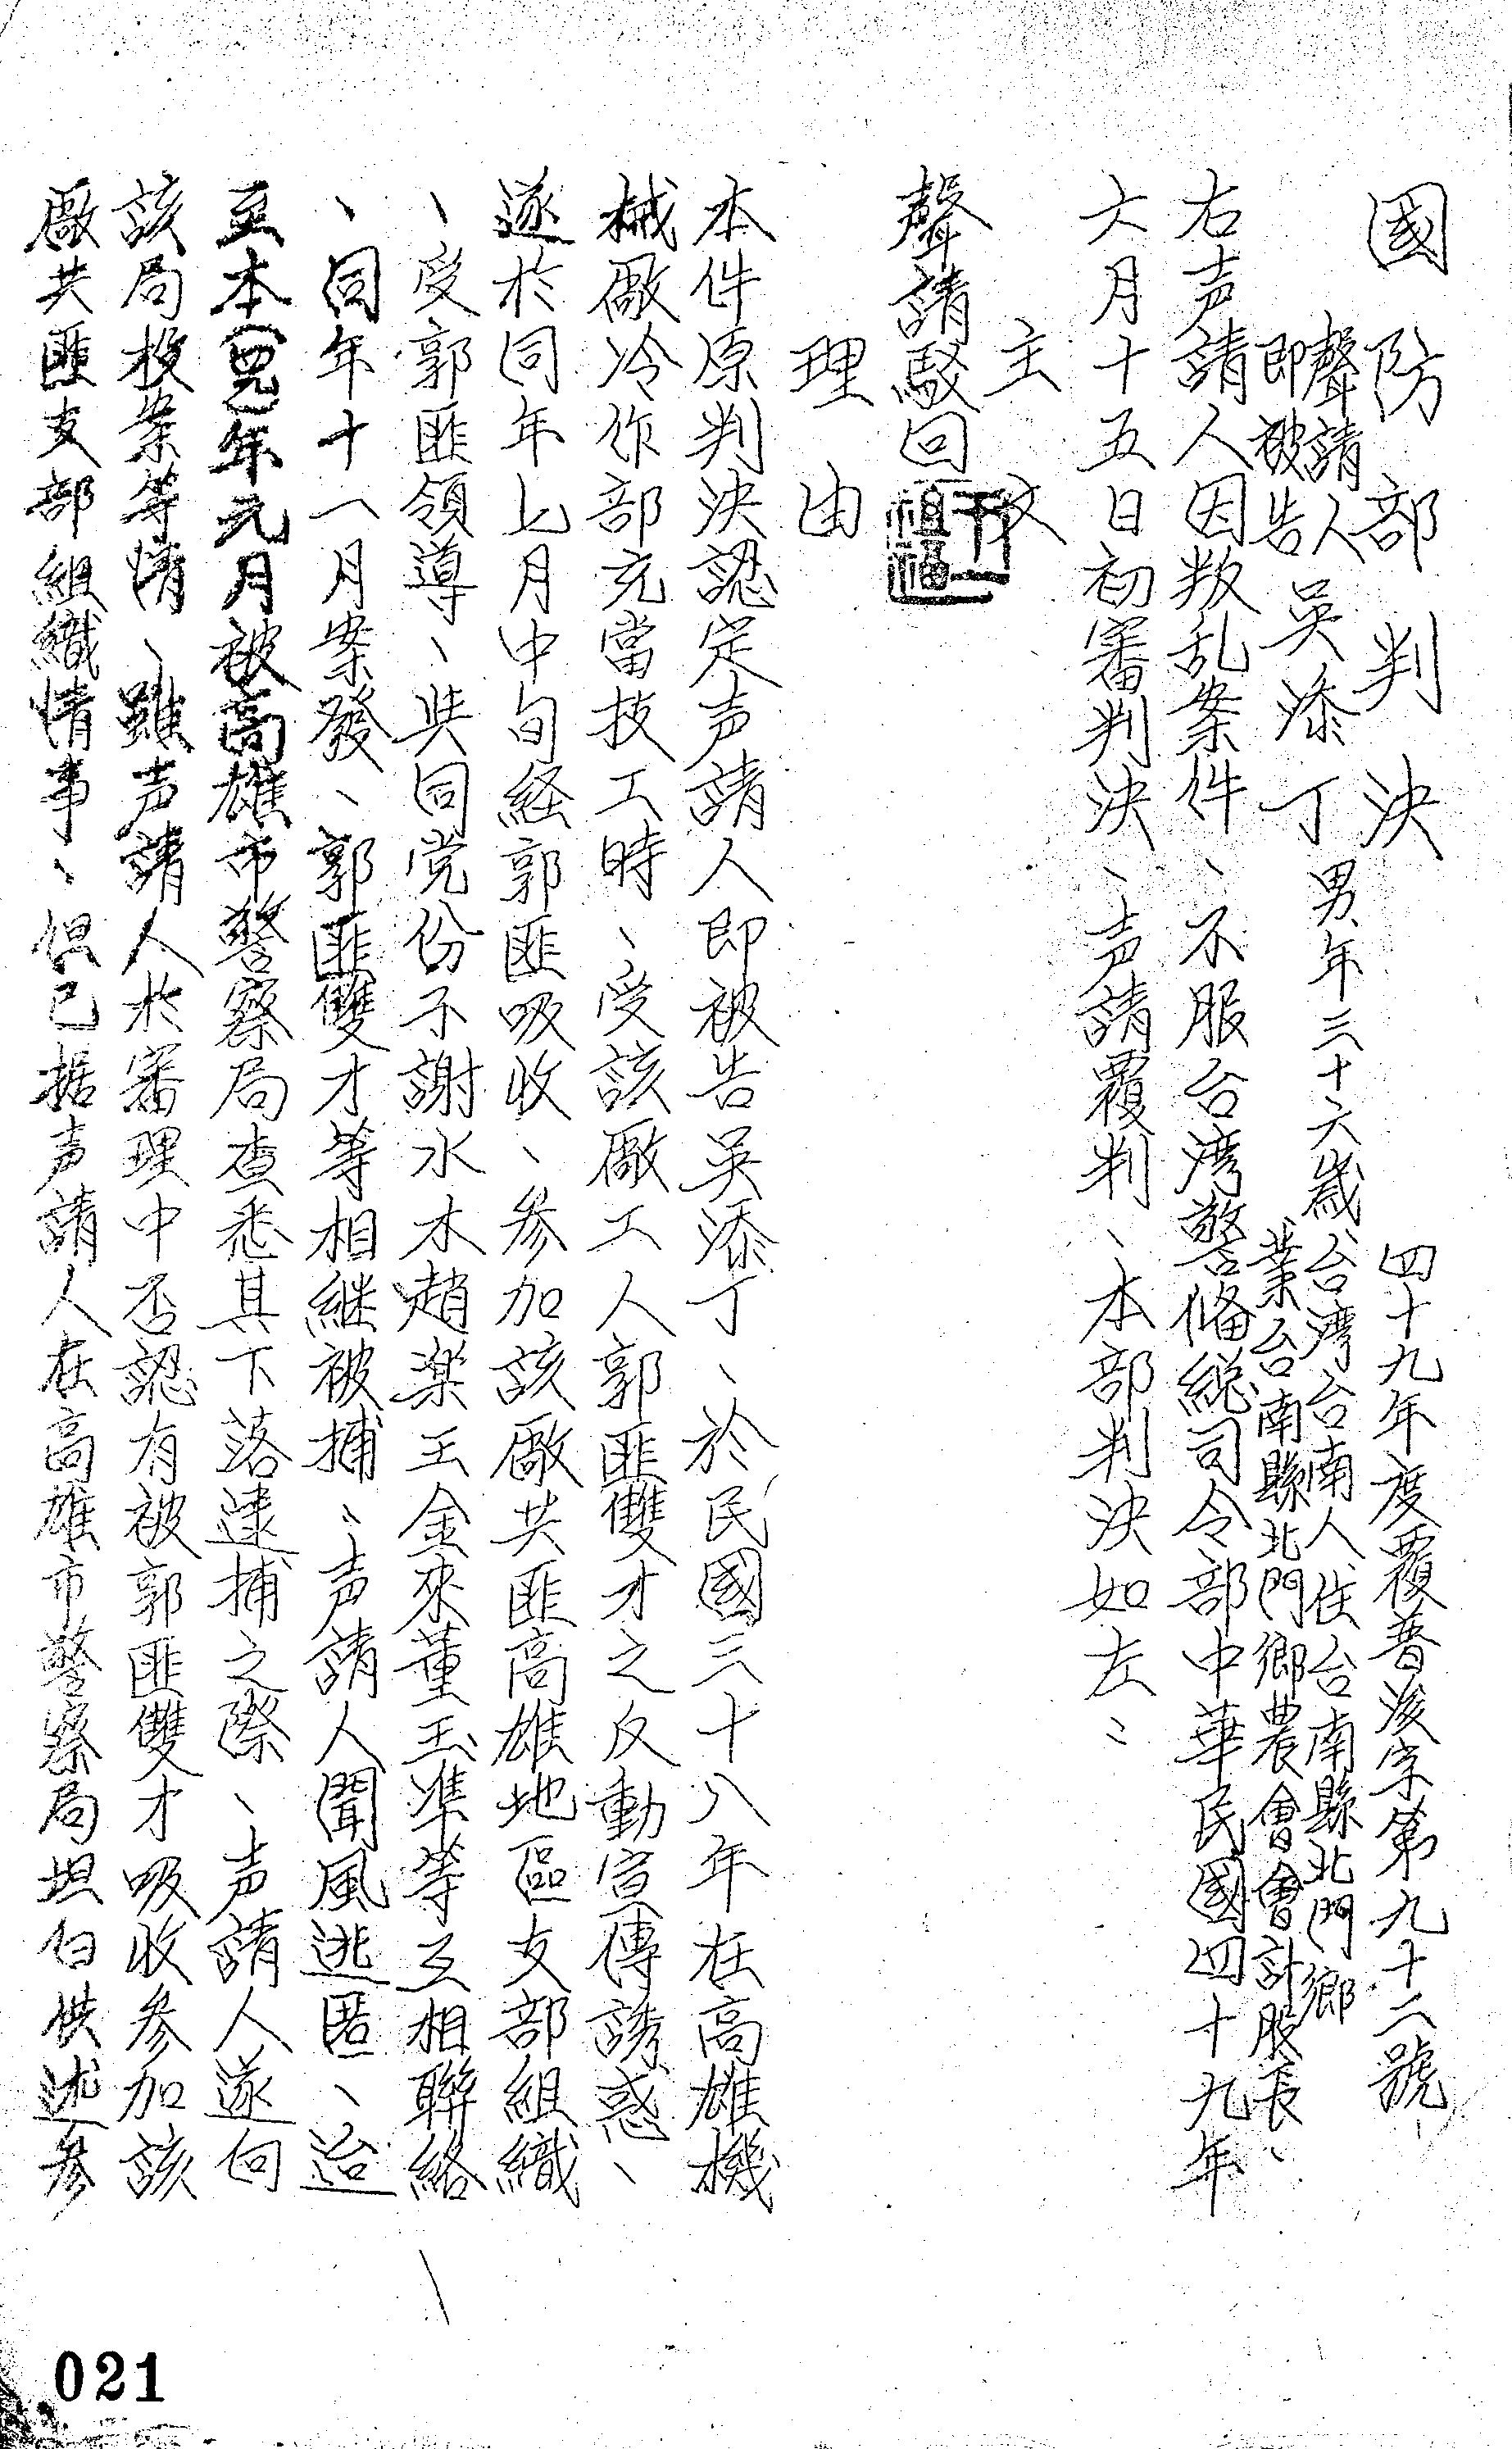 國防部判決
四十九年度覆普浚字第九十二號
聲請人
即被告吳添丁
男、年三十六歲台湾台南人住台南縣北門鄉
業台南縣北門鄉農會會計股長、
右声請人因叛乱案件、不服台湾警俻総司令部中華民國四十九年
六月十五日初審判決、声請覆判、本部判決如左：
主文
聲請駁回
理由
本件原判決認定声請人即被告吳添丁、於民國三十八年在高雄機
械廠冷作部充當技工時、受該廠工人郭匪雙才之反動宣傳誘惑、
遂於同年七月中旬経郭匪吸收、參加該廠共匪高雄地區支部組織
、受郭匪領導、與同党份子謝水木趙楽王金來董玉準等互相聯絡
、同年十一月案發、郭匪雙才等相継被捕、声請人聞風逃匿、迨
至本(四九)年元月被高雄市警察局查悉其下落逮捕之際、声請人遂向
該局投案等情、雖声請人於審理中否認有被郭匪雙才吸收參加該
廠共匪支部組織情事、但已据声請人在高雄市警察局坦白供述參
021